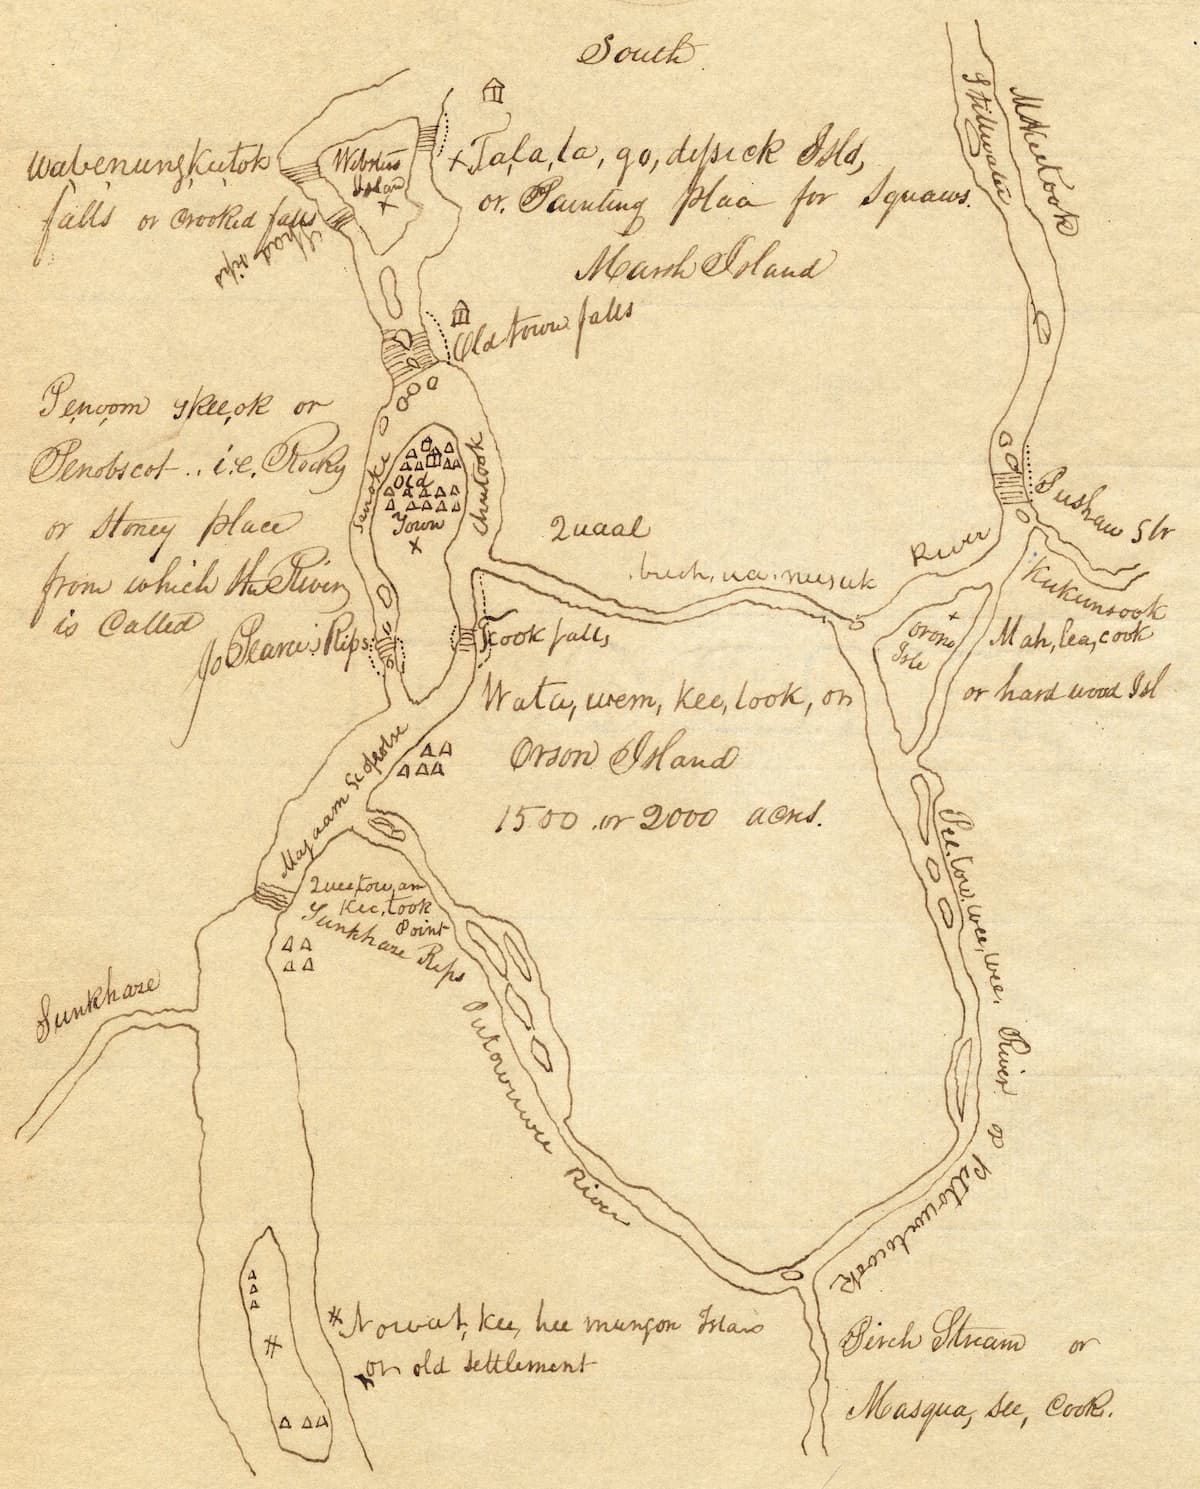 South
Wabenungkutok
falls or Crooked falls
Shad rips
Websters
Island
Tala,la, go, depsick Isld,
or. Painting place for Squaws.
Marsh Island
Old town falls
Stillwater
Penoom skeeok or
Penobscot .. i.e. Rocky
or Stoney place
from which the River
is Called
Jo Pearce's Rips
Old
Town
Quaal
.buch,ua.nusuk River
Pushaw Str
Kukunsook
Mah,lea,cook
or hard wood Isl
Orono
Isle
Cook falls
Watu,wem, kee, look, or
Orson Island
1500 .or 2000 acres.
kee,took
Point
Sunkhaze Rips
Sunkhaze
Putowuwee River
Pee,low,wee,wee, River or
Nowat, kee, hee mungon Islan
or old settlement
Birch Stream or
Masqua, see, Cook.